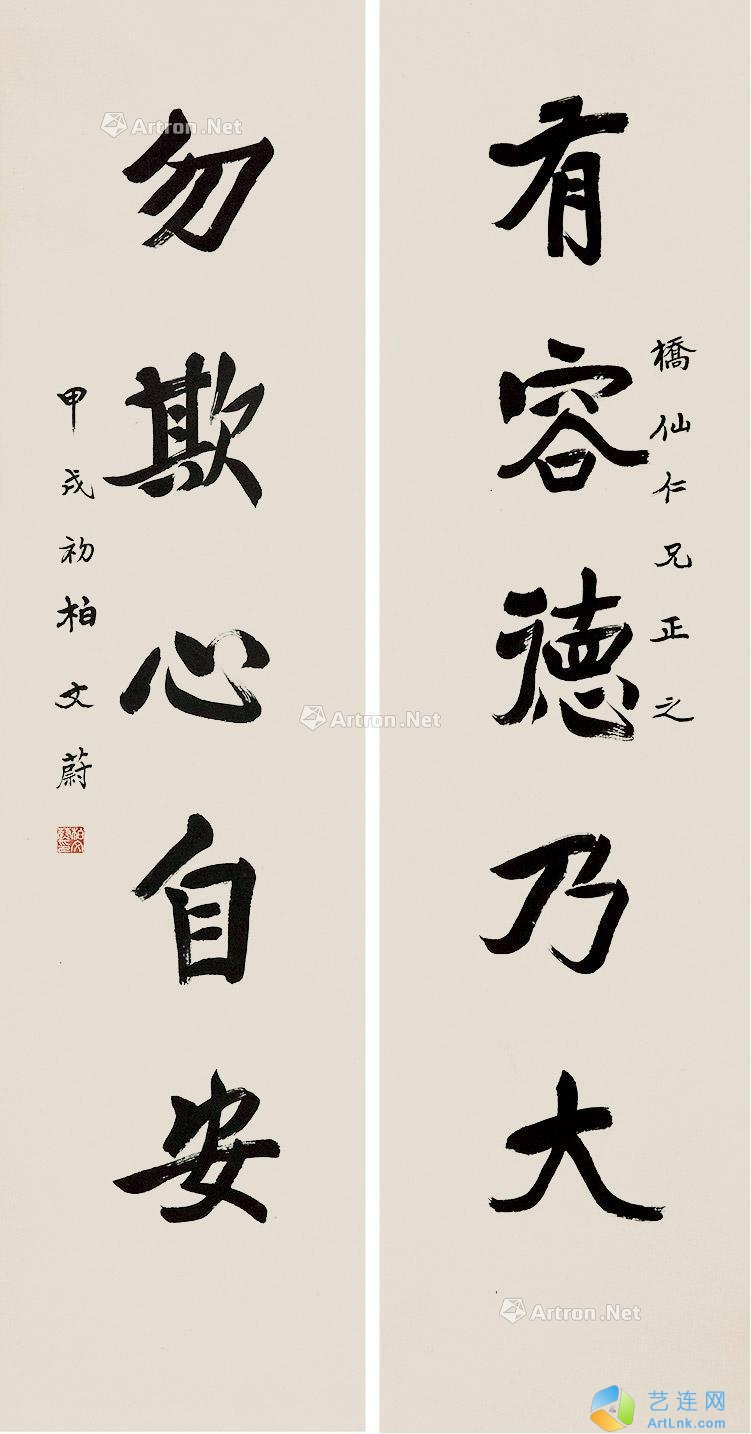 橋仙仁兄正之
有容德乃大
勿欺心自安
甲戌初柏文蔚
柏文蔚印
Artron.Net
Artron.Net
Artron.Net
艺连网
ArtLnk.com